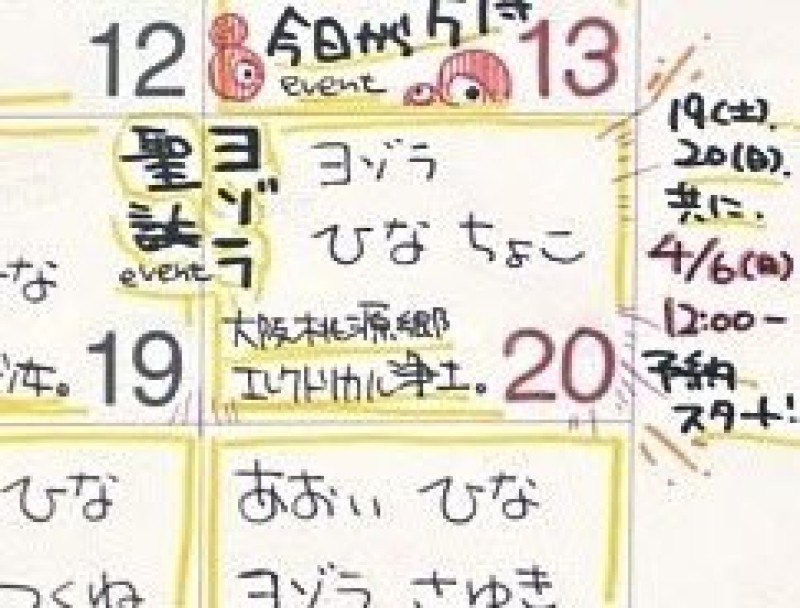 12
今日が
event
13
ヨゾラ
聖誕
event
ヨゾラ
ひな ちょこ
大阪桃源郷
エレクトリカル浄土。
20
19(土).
20(日).
共に.
4/6(日)
12:00ー
予約
スタート!
な
19
ひな
つくね
あおい ひな
ヨゾラ さゆき